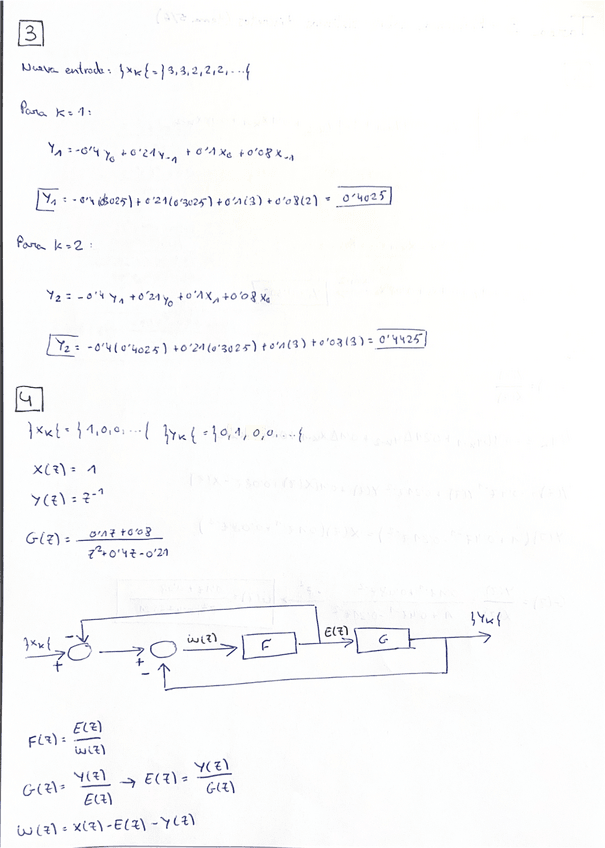 3
Nueva entrada: }xₖ{ = }3,3,2,2,2,...{
Para k=1:
y₁ = -0'4 y₀ + 0'21 y₋₁ + 0'1 x₀ + 0'08 x₋₁
y₁ = -0'4(0'3025) + 0'21(0'3025) + 0'1(3) + 0'08(2) = 0'4025
Para k=2:
y₂ = -0'4 y₁ + 0'21 y₀ + 0'1 x₁ + 0'08 x₀
y₂ = -0'4(0'4025) + 0'21(0'3025) + 0'1(3) + 0'08(3) = 0'4425
4
}xₖ{ = }1,0,0,...{ }yₖ{ = }0,1,0,0,...{
X(z) = 1
Y(z) = z⁻¹
G(z) = (0'1z + 0'08) / (z² + 0'4z - 0'21)
}xₖ{ - + + - W(z) F E(z) G }yₖ{
F(z) = E(z) / W(z)
G(z) = Y(z) / E(z) → E(z) = Y(z) / G(z)
W(z) = X(z) - E(z) - Y(z)